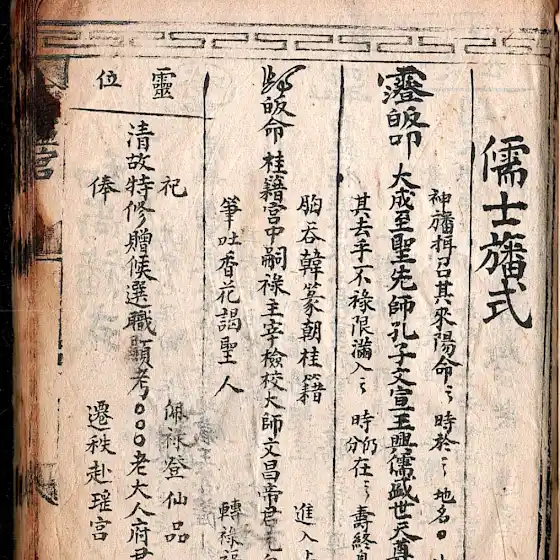 儒士旛式
神旛揖召其來陽命〻時於〻地名〇
其去手不祿限滿入〻時仍分在〻壽終
皈叩大成至聖先師孔子文宣王興儒盛世天尊
胸吞韓篆朝桂籍 進入
皈命桂籍宮中嗣祿主宰檢校大師文昌帝君
筆吐香花謁聖人 轉祿
靈位
祀 佩祿登仙品
清故特修贈候選職顯考〇〇〇老大人府君
俸 遷秩赴瑶宮
宮